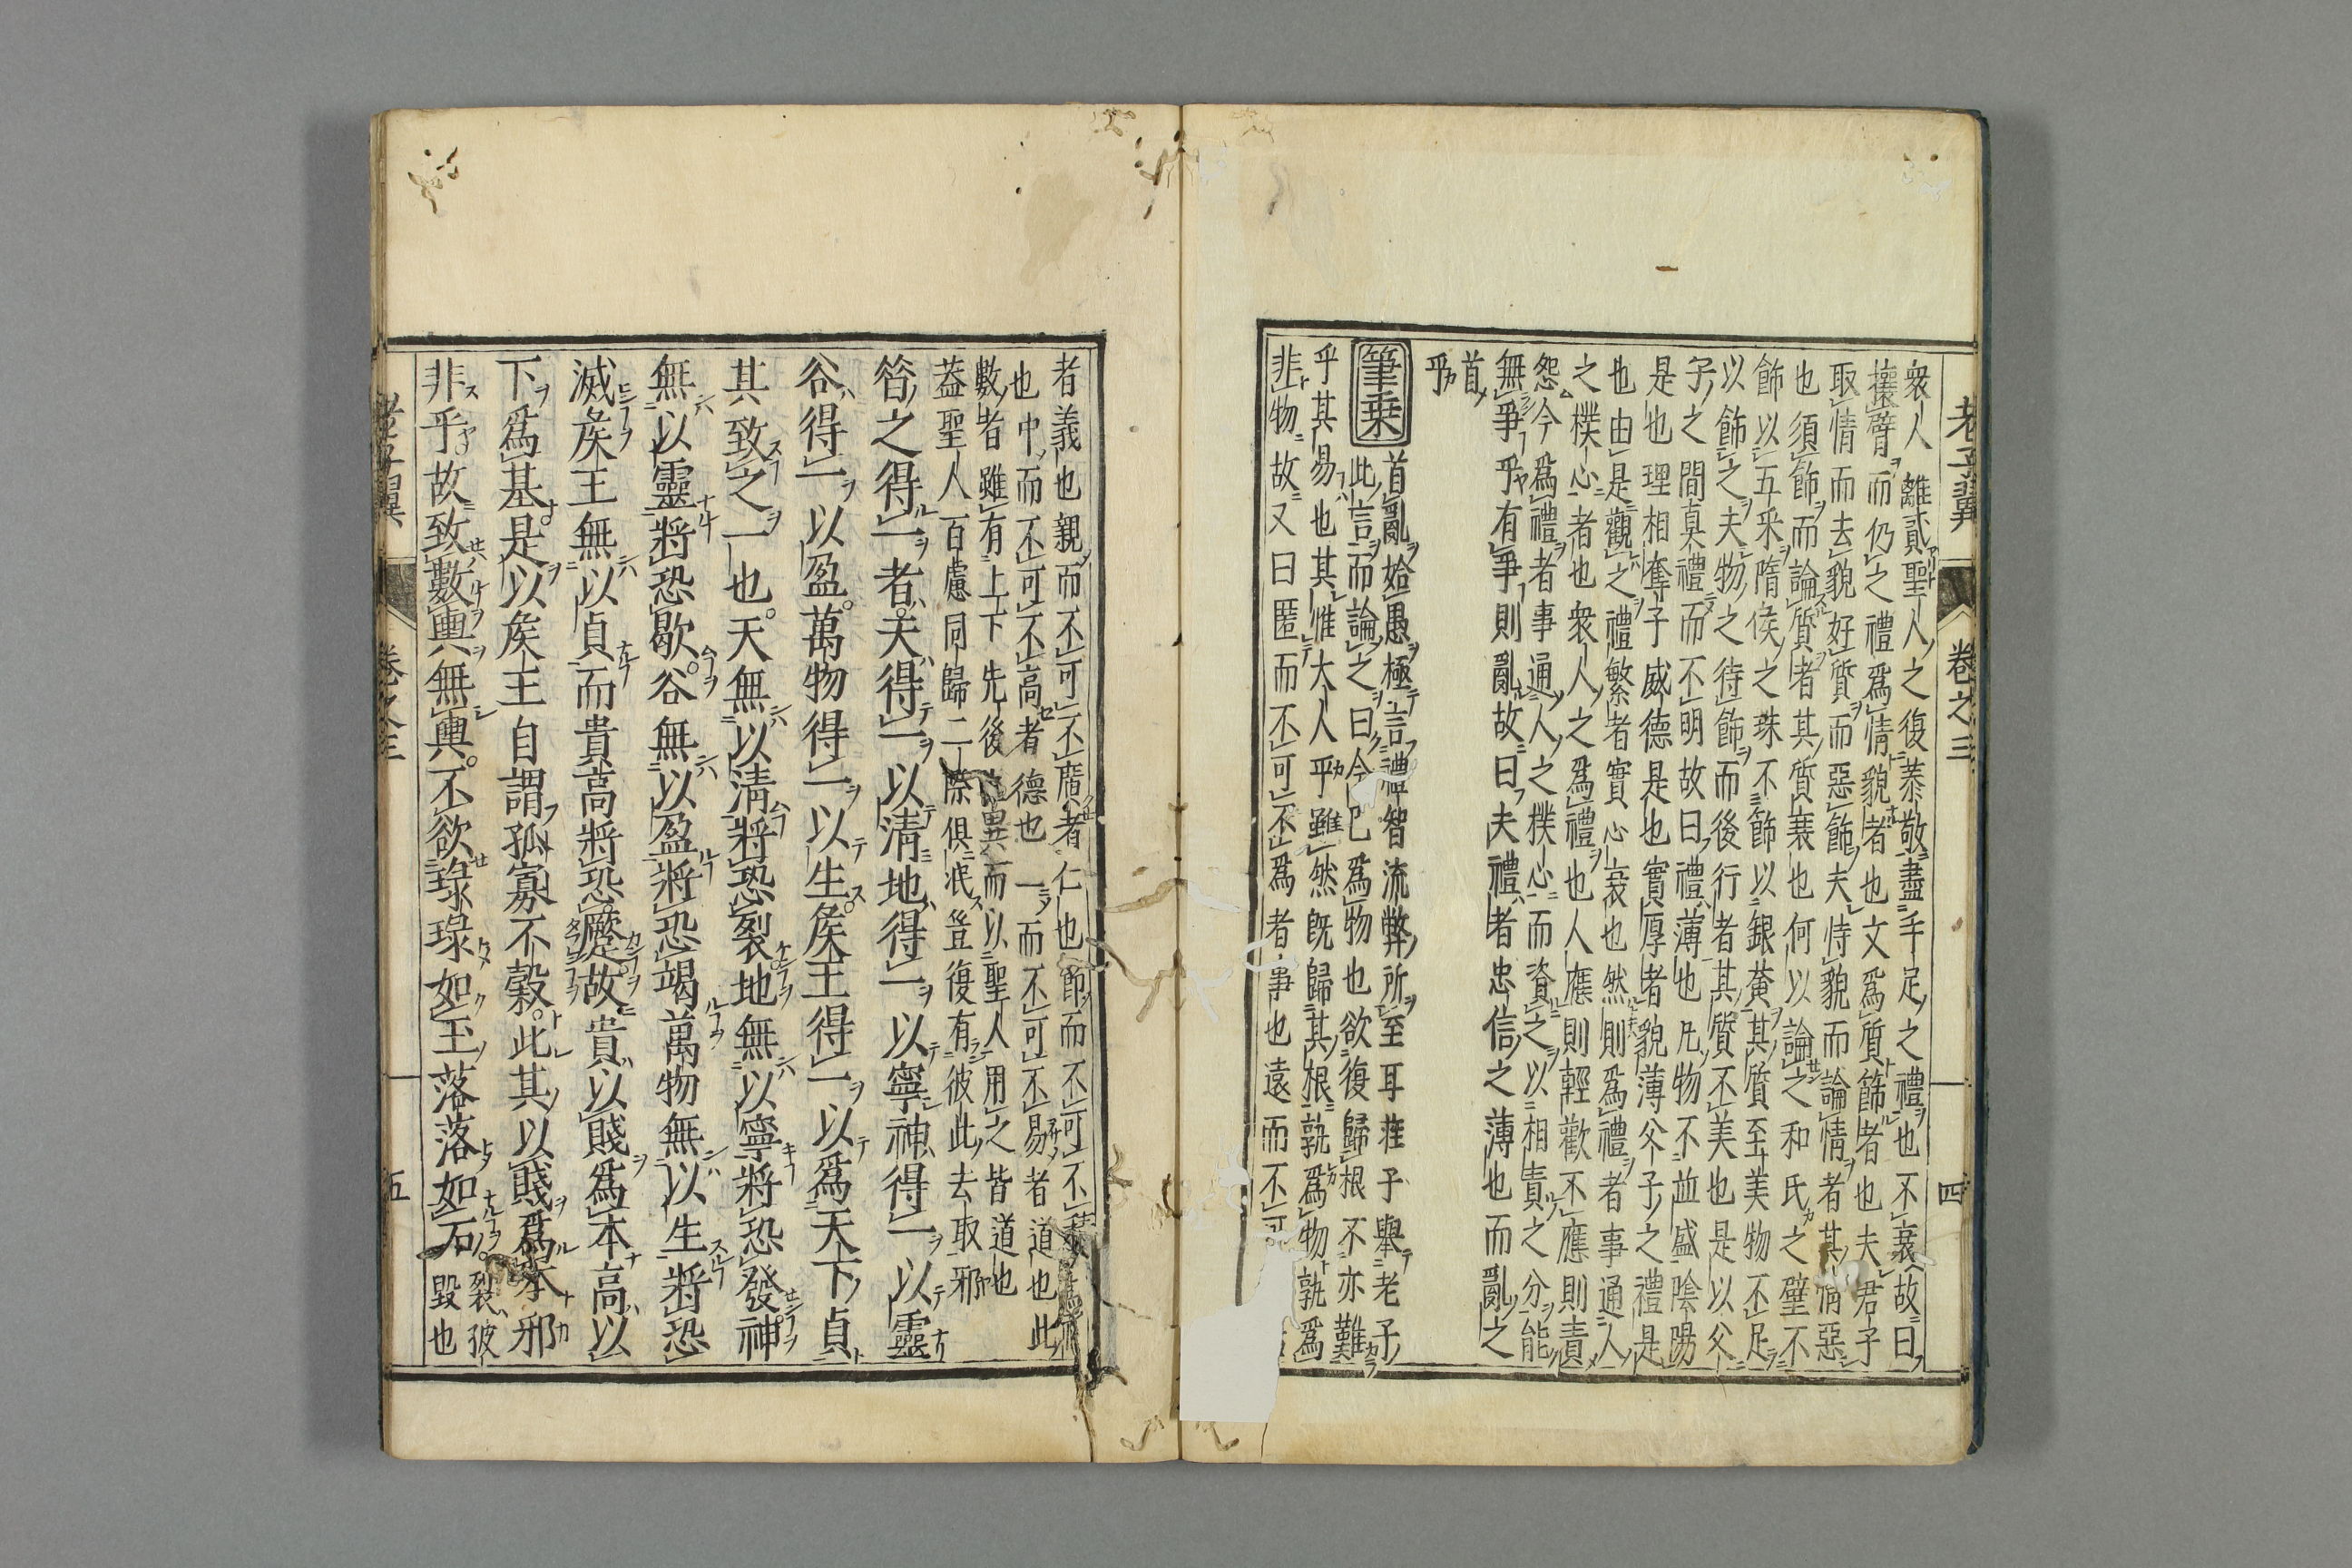 老子翼 卷之三 四
衆人雖貳聖人之復恭敬盡手足之禮也不衰故曰
攘臂而仍之禮爲情貌者也文爲質飾者也夫君子
取情而去貌好質而惡飾夫恃貌而論情者其情惡
也須飾而論質者其質衰也何以論之和氏之璧不
飾以五采隋侯之珠不飾以銀黄其質至美物不足
以飾之夫物之待飾而後行者其質不美也是以父
子之間其禮而不明故曰禮薄也凡物不並盛陰陽
是也理相奪予威德是也實厚者貌薄父子之禮是
也由是觀之禮繁者實心衰也然則爲禮者事通人
之樸心者也衆人之爲禮也人應則輕歡不應則責
怨今爲禮者事通人之樸心而資之以相責之分能
無爭乎有爭則亂故曰夫禮者忠信之薄也而亂之
首乎
筆乗 首亂始愚極言禮智流弊所至耳莊子舉老子
此言而論之曰今已爲物也欲復歸根不亦難
乎其易也其惟大人乎雖然既歸其根孰爲物孰爲
非物故又曰匿而不可不爲者事也遠而不可
者義也親而不可不廣者仁也節而不可不
也中而不可不高者德也一而不可不易者道也此
數者雖有上下先後異而以聖人用之皆道也
蓋聖人百慮同歸二際俱泯豈復有彼此去取邪
昔之得一者天得一以清地得一以寧神得一以靈
谷得一以盈萬物得一以生矦王得一以爲天下貞
其致之一也天無以清將恐裂地無以寧將恐發神
無以靈將恐歇谷無以盈將恐竭萬物無以生將恐
滅矦王無以貞而貴高將恐蹷故貴以賤爲本高以
下爲基是以矦王自謂孤寡不穀此其以賤爲本邪
非乎故致數輿無輿不欲琭琭如玉落落如石 裂破毀也
老子翼 卷之三 五